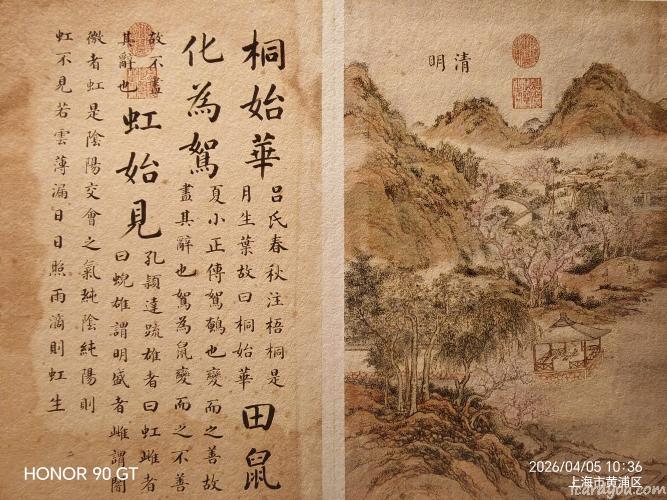 清明
桐始華
呂氏春秋注梧桐是
月生葉故曰桐始華
田鼠
化為鴽
夏小正傳鴽鵪也變而之善故
盡其辭也鴽為鼠變而之不善
故不盡
其辭也
虹始見
孔穎達疏雄者曰虹雌者
曰蜺雄謂明盛者雌謂闇
微者虹是陰陽交會之氣純陰純陽則
虹不見若雲薄漏日日照雨滴則虹生
HONOR 90 GT
2026/04/05 10:36
上海市黄浦区
icarayou.com